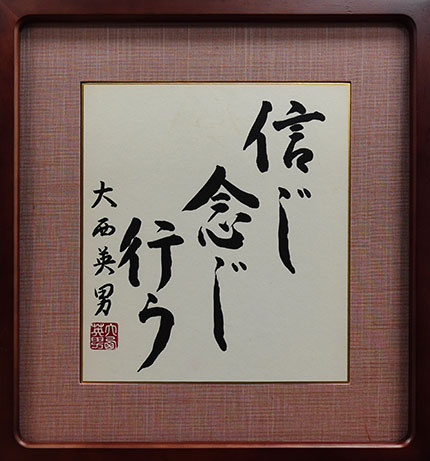 信じ
念じ
行う
大西英男